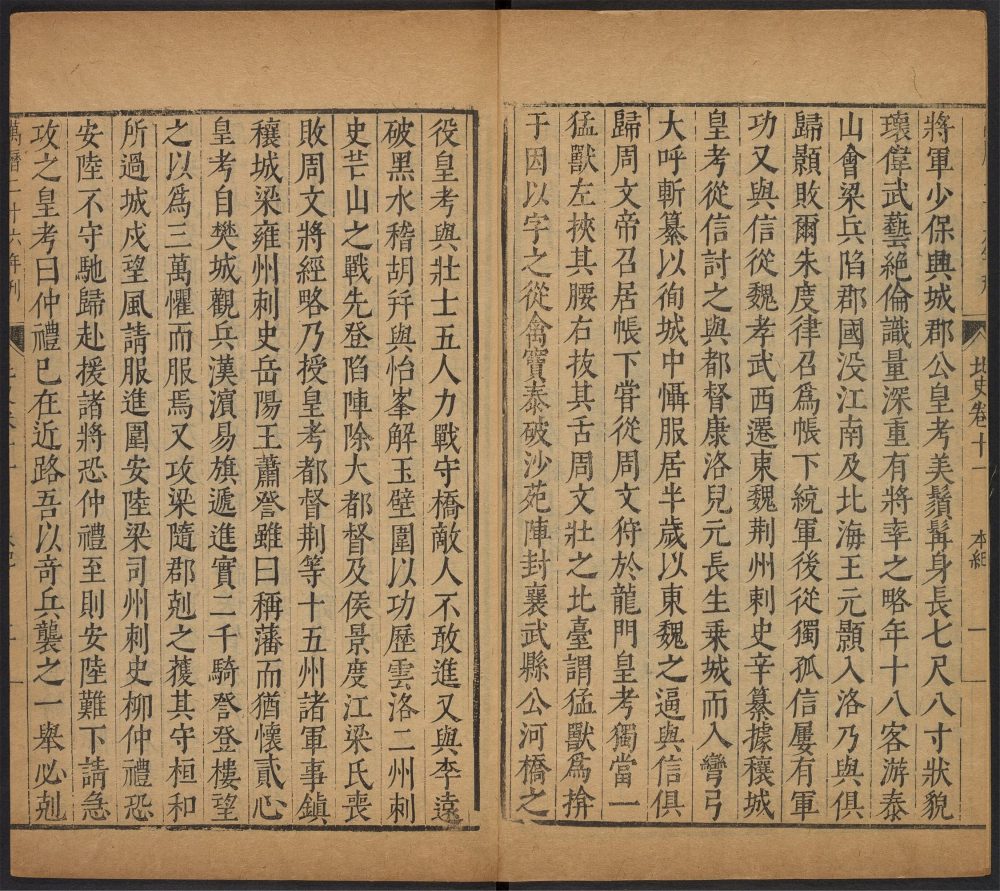 北史卷十一 本紀 一
將軍少保興城郡公皇考美鬚髯身長七尺八寸狀貌
瓌偉武藝絕倫識量深重有將率之略年十八客游泰
山會梁兵陷郡國没江南及北海王元顥入洛乃與俱
歸顥敗爾朱度律召爲帳下統軍後從獨孤信屢有軍
功又與信從魏孝武西遷東魏荆州刺史辛纂據穰城
皇考從信討之與都督康洛兒元長生乗城而入彎弓
大呼斬纂以徇城中懾服居半歲以東魏之逼與信俱
歸周文帝召居帳下嘗從周文狩於龍門皇考獨當一
猛獸左挾其腰右抜其舌周文壯之北臺謂猛獸爲揜
于因以字之從禽竇泰破沙苑陣封襄武縣公河橋之
役皇考與壯士五人力戰守橋敵人不敢進又與李遠
破黑水稽胡幷與怡峯解玉壁圍以功歷雲洛二州刺
史芒山之戰先登陷陣除大都督及侯景度江梁氏喪
敗周文將經略乃授皇考都督荆等十五州諸軍事鎮
穰城梁雍州刺史岳陽王蕭詧雖曰稱藩而猶懷貳心
皇考自樊城觀兵漢濱易旗遞進實二千騎詧登樓望
之以爲三萬懼而服焉又攻梁隨郡剋之獲其守桓和
所過城戍望風請服進圍安陸梁司州刺史柳仲禮恐
安陸不守馳歸赴援諸將恐仲禮至則安陸難下請急
攻之皇考曰仲禮已在近路吾以奇兵襲之一舉必剋
萬曆二十六年刊